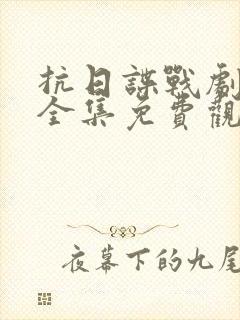 抗日諜戰劇
全集免費觀
夜幕下的九尾